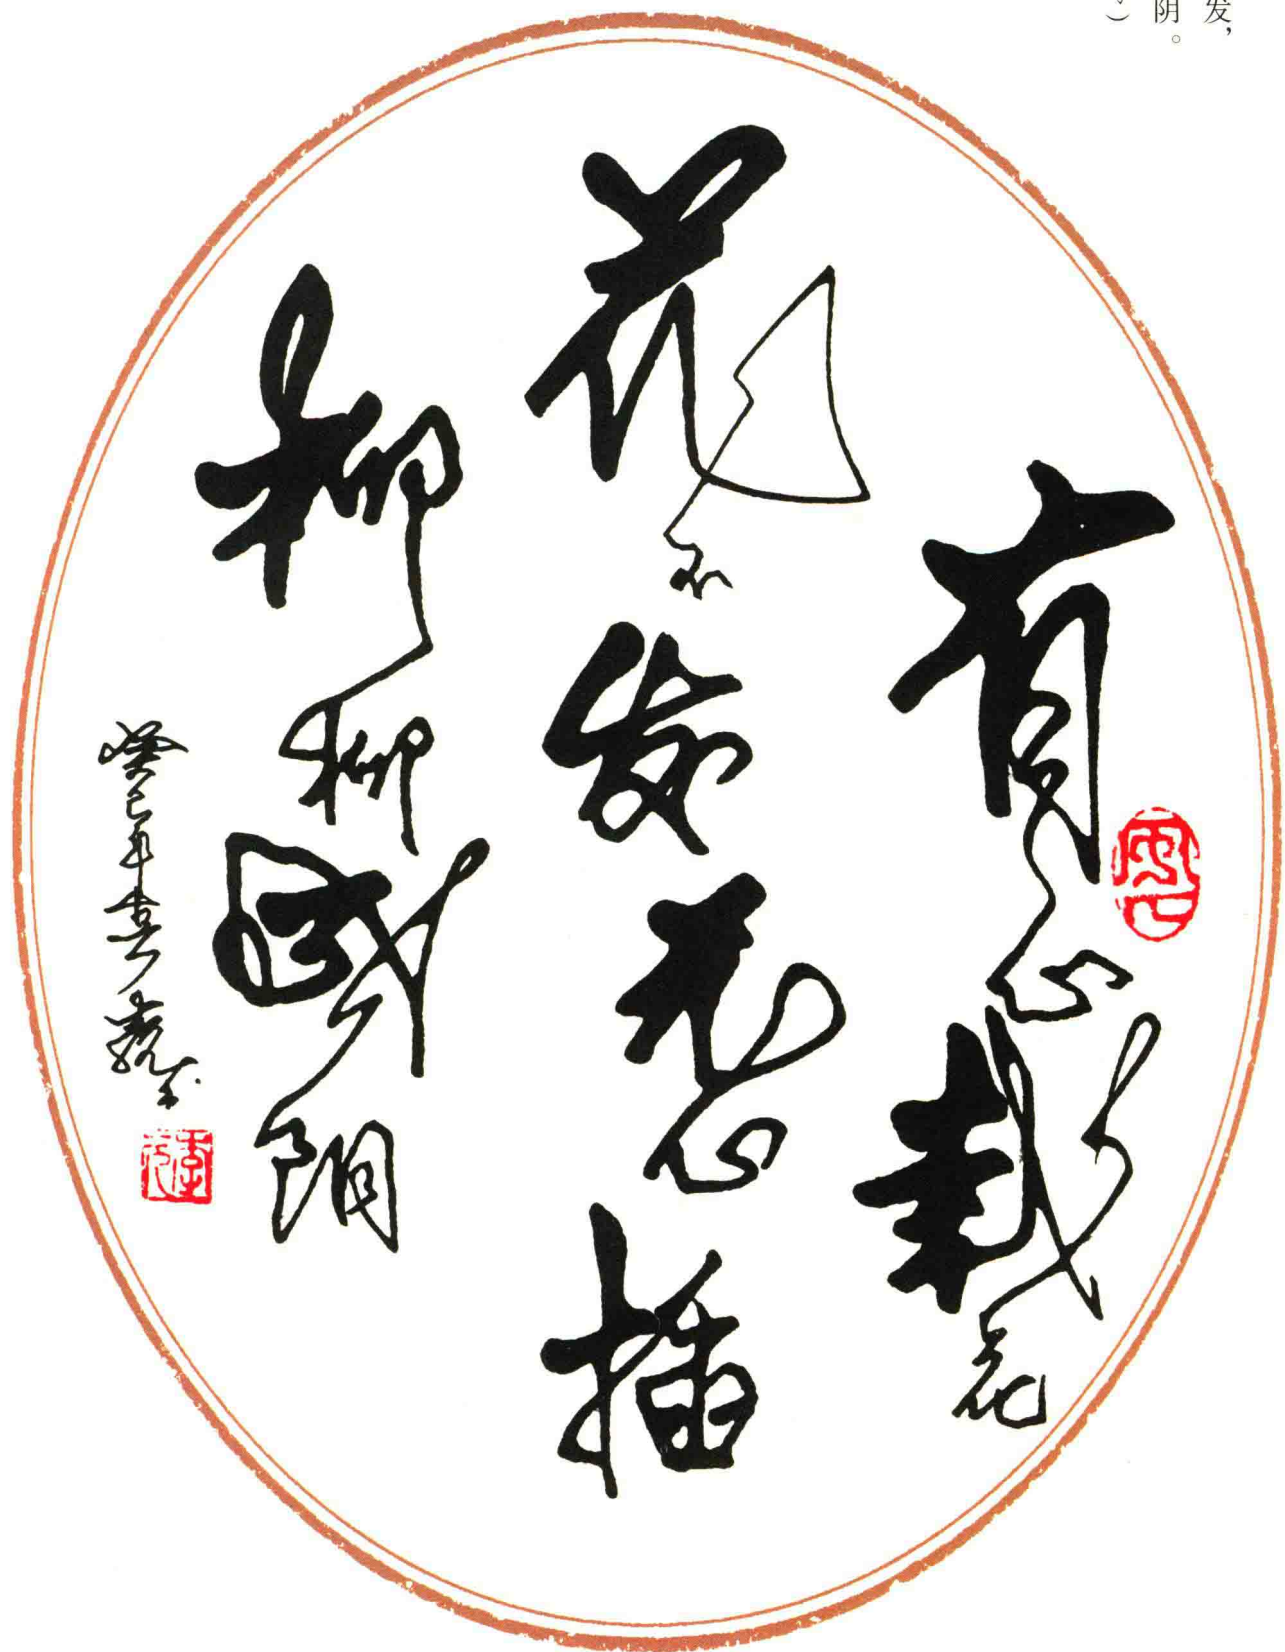 发，
阴。
）
有心栽花
花不发无心插
柳柳成阴
癸巳年